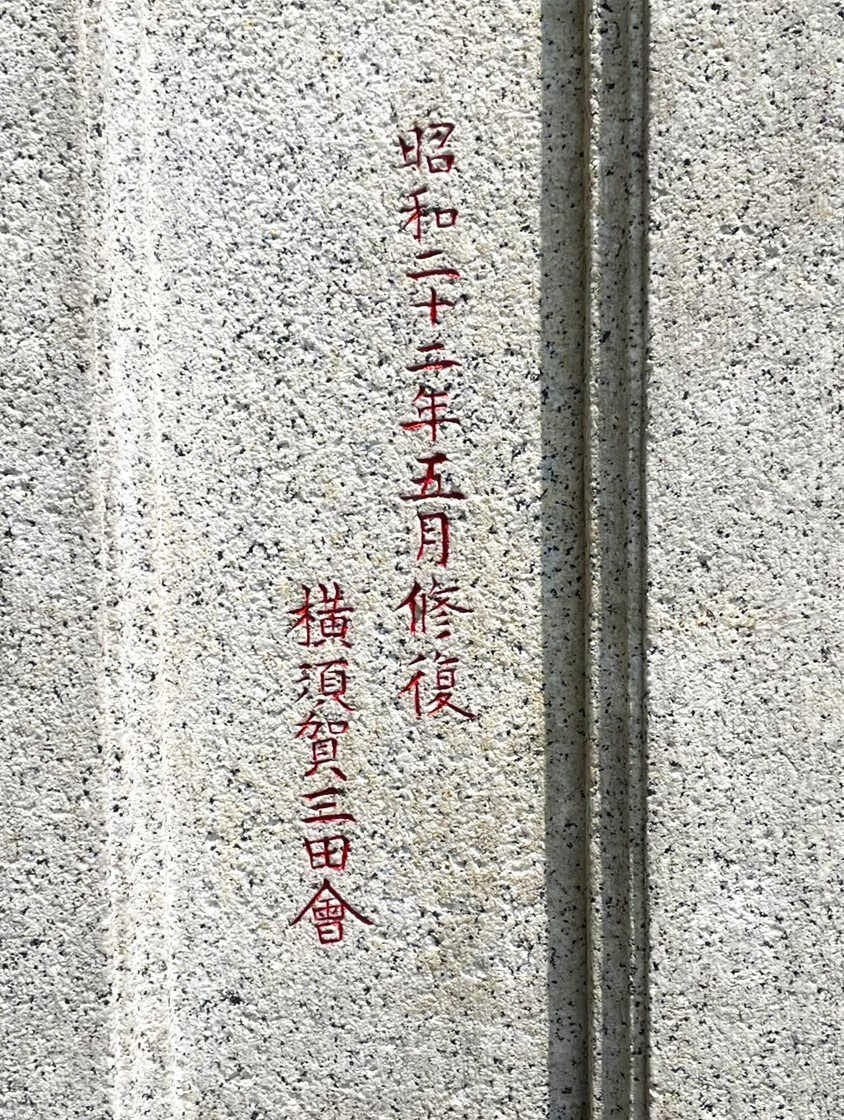 昭和二十二年五月修復
横須賀三田會